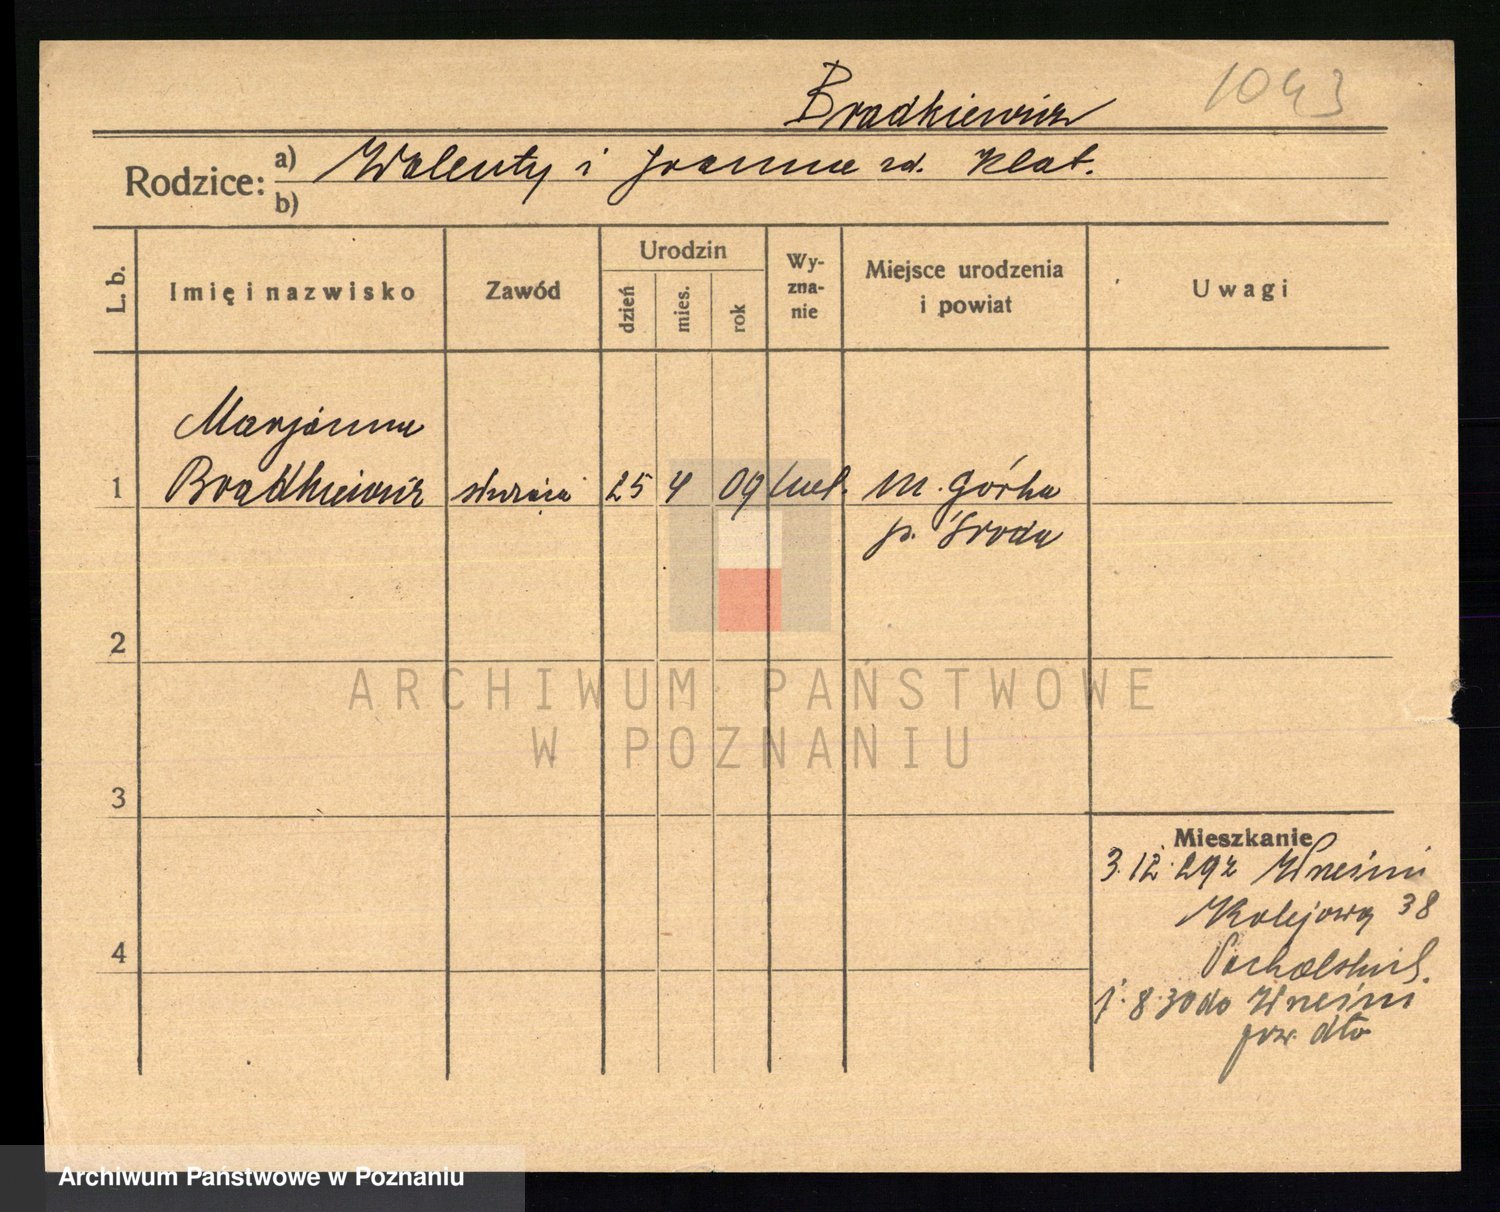 Bradkiewicz 1043
Rodzice: a) Walenty i Joanna zd. Klat.
b)
L. b. Imię i nazwisko Zawód Urodzin dzień mies. rok Wyznanie Miejsce urodzenia i powiat Uwagi
Marjanna
1 Bradkiewicz służąca 25 4 09 kat. M. Górka
p. Środa
2
3
4
Mieszkanie
3.12.29 z Wrześni
Kolejowa 38
1.8.30 do Wrześni
pow. dto
ARCHIWUM PAŃSTWOWE
W POZNANIU
Archiwum Państwowe w Poznaniu